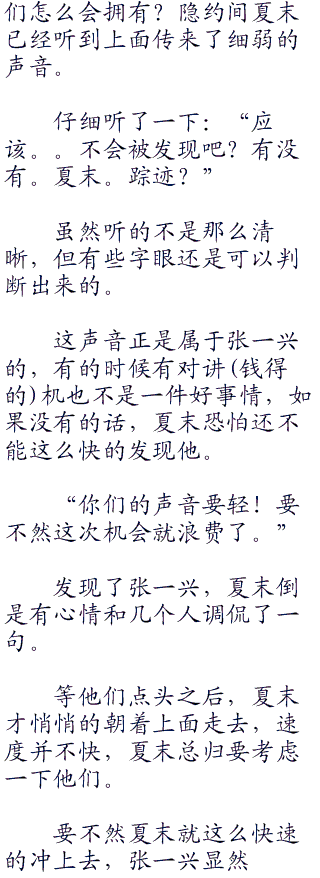 们怎么会拥有？隐约间夏末
已经听到上面传来了细弱的
声音。
仔细听了一下：“应
该。。不会被发现吧？有没
有。夏末。踪迹？”
虽然听的不是那么清
晰，但有些字眼还是可以判
断出来的。
这声音正是属于张一兴
的，有的时候有对讲(钱得
的)机也不是一件好事情，如
果没有的话，夏末恐怕还不
能这么快的发现他。
“你们的声音要轻！要
不然这次机会就浪费了。”
发现了张一兴，夏末倒
是有心情和几个人调侃了一
句。
等他们点头之后，夏末
才悄悄的朝着上面走去，速
度并不快，夏末总归要考虑
一下他们。
要不然夏末就这么快速
的冲上去，张一兴显然